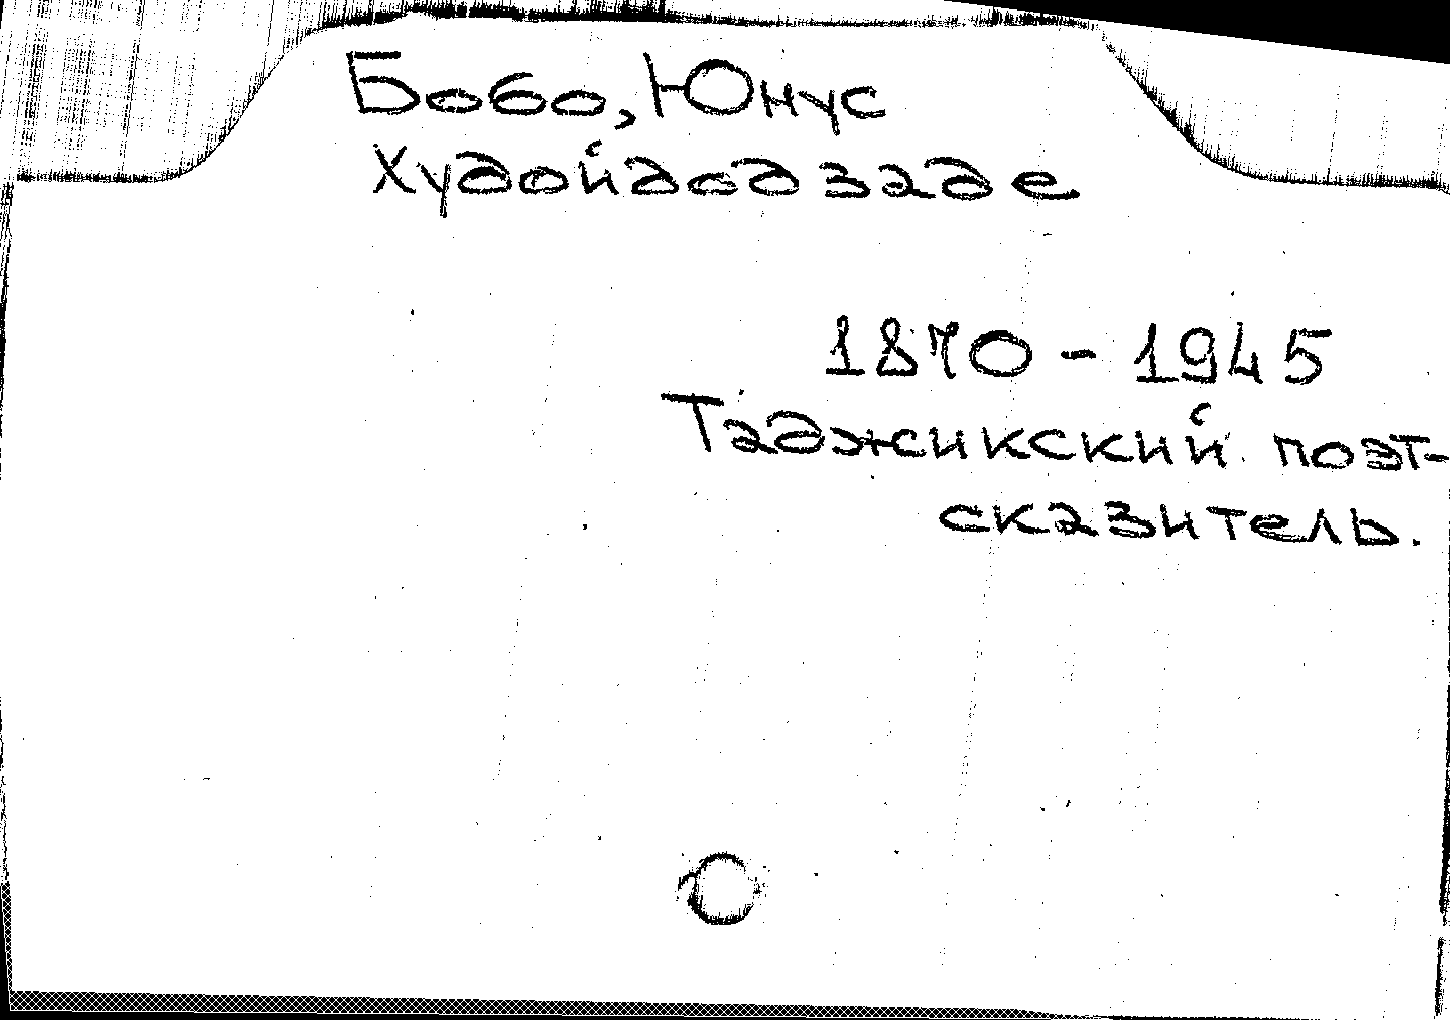 Бобо, Юнус
Худойдодзаде
1870 - 1945
Таджикский поэт-
сказитель.